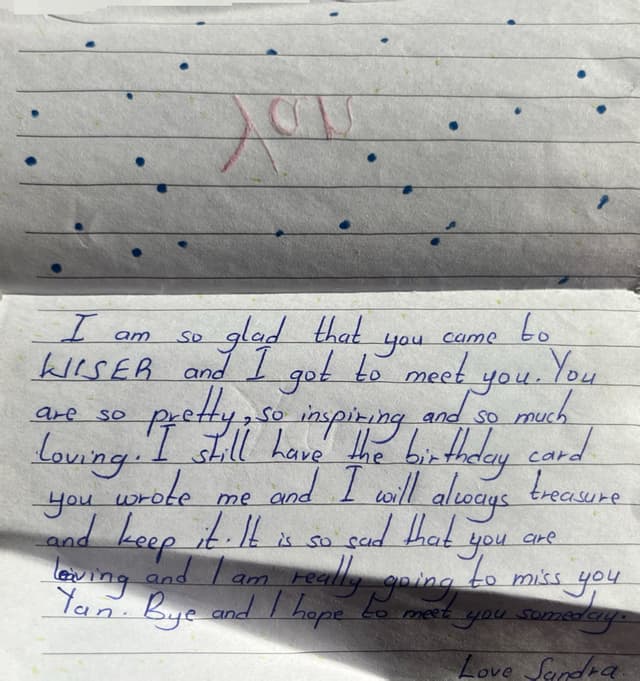 Yan
I am so glad that you came to
WISER and I got to meet you. You
are so pretty, so inspiring and so much
loving. I still have the birthday card
you wrote me and I will always treasure
and keep it. It is so sad that you are
leaving and I am really going to miss you
Yan. Bye and I hope to meet you someday.
Love Sandra.